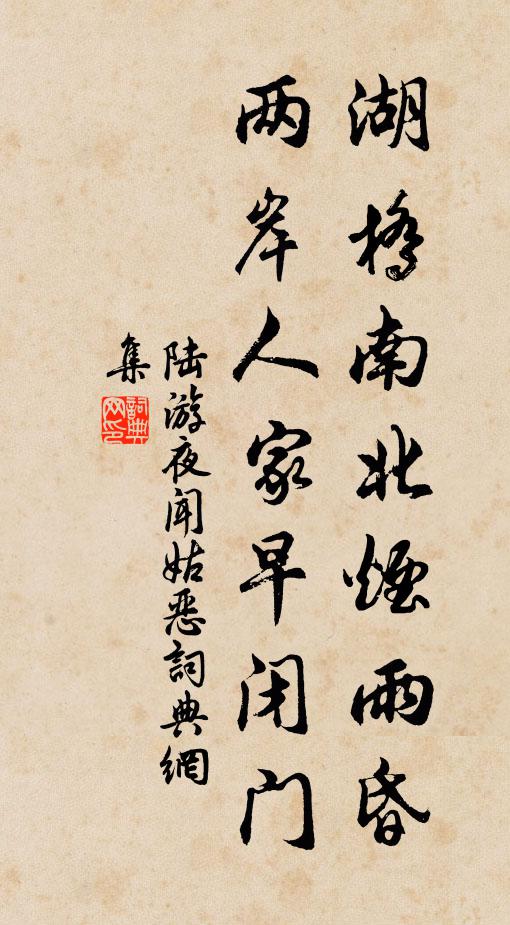 湖橋南北煙雨昏
两岸人家早闭门
陆游夜闻姑恶詞典網
集
詞典网印